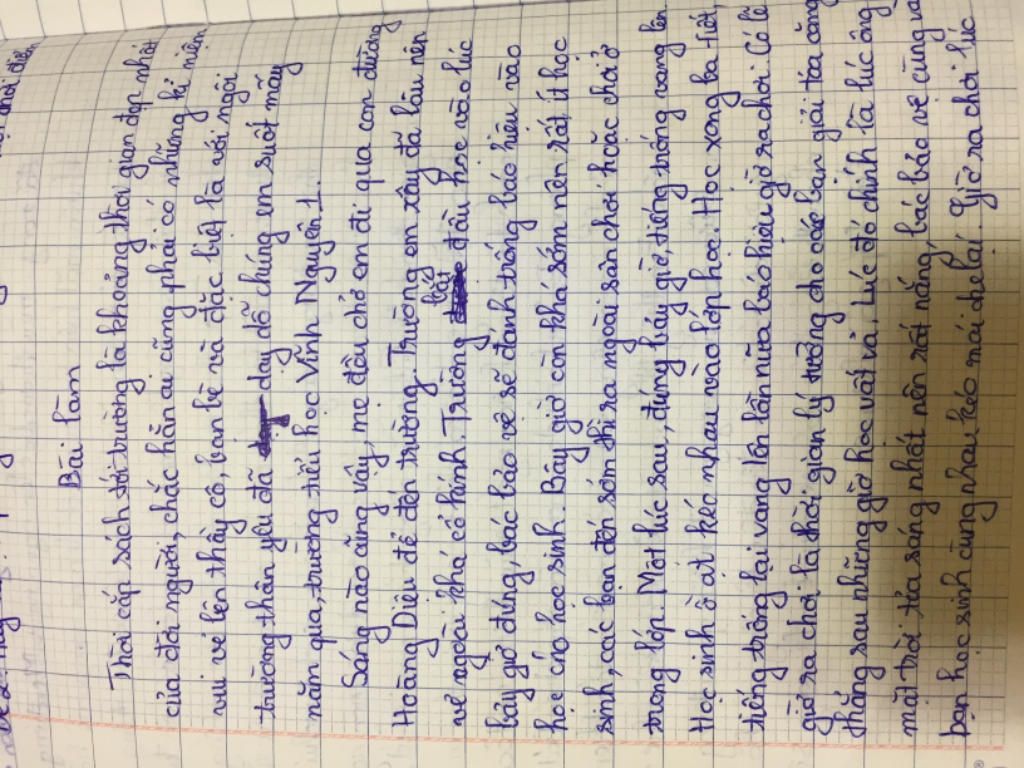 Bài làm
Thời cắp sách tới trường là khoảng thời gian đẹp nhất
của đời người, chắc hẳn ai cũng phải có những kỉ niệm
vui vẻ bên thầy cô, bạn bè và đặc biệt là với ngôi
trường thân yêu đã dạy dỗ chúng em suốt mấy
năm qua, trường tiểu học Vĩnh Nguyên 1.
Sáng nào cũng vậy, mẹ đều chở em đi qua con đường
Hoàng Diệu để đến trường. Trường em xây đã lâu nên
vẻ ngoài khá cổ kính. Trường bắt đầu học vào lúc
bảy giờ đúng, bác bảo vệ sẽ đánh trống báo hiệu vào
học cho học sinh. Bây giờ còn khá sớm nên rất ít học
sinh, các bạn đến sớm thì ra ngoài sân chơi hoặc chơi ở
trong lớp. Một lúc sau, đúng bảy giờ, tiếng trống vang lên
Học sinh ồ ạt kéo nhau vào lớp học. Học xong ba tiết,
tiếng trống lại vang lên lần nữa báo hiệu giờ ra chơi. Có lẽ
giờ ra chơi là thời gian lý tưởng cho các bạn giải tỏa căng
thẳng sau những giờ học vất vả. Lúc đó chính là lúc ông
mặt trời tỏa sáng nhất nên rất nắng, bác bảo vệ cùng và
bạn học sinh cùng nhau kéo mái che lại. Giờ ra chơi lúc